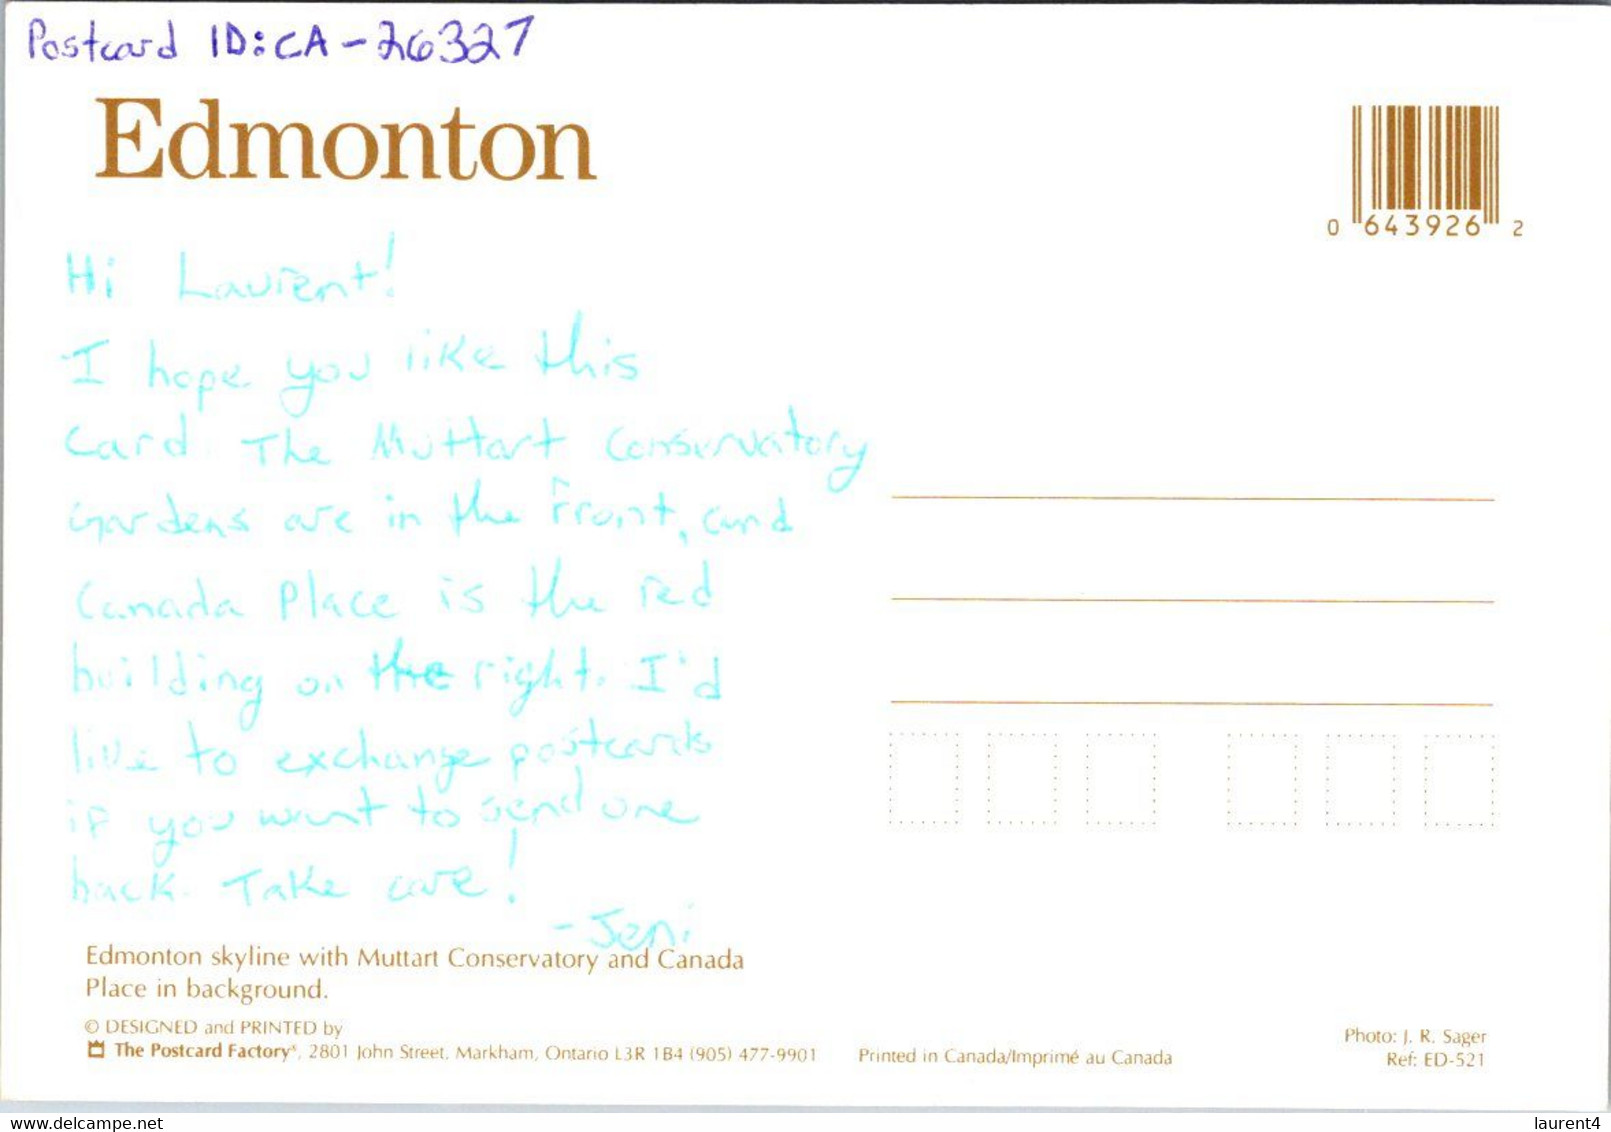 Postcard ID: CA-26327
Edmonton
0 643926 2
Hi Laurent!
I hope you like this
Card. The Muttart Conservatory
Gardens are in the front, and
Canada Place is the red
building on the right. I'd
like to exchange postcards
if you want to send one
back. Take care!
-Jeni
Edmonton skyline with Muttart Conservatory and Canada
Place in background.
© DESIGNED and PRINTED by
The Postcard Factory®, 2801 John Street, Markham, Ontario L3R 1B4 (905) 477-9901
Printed in Canada/Imprimé au Canada
Photo: J. R. Sager
Ref: ED-521
www.delcampe.net
laurent4